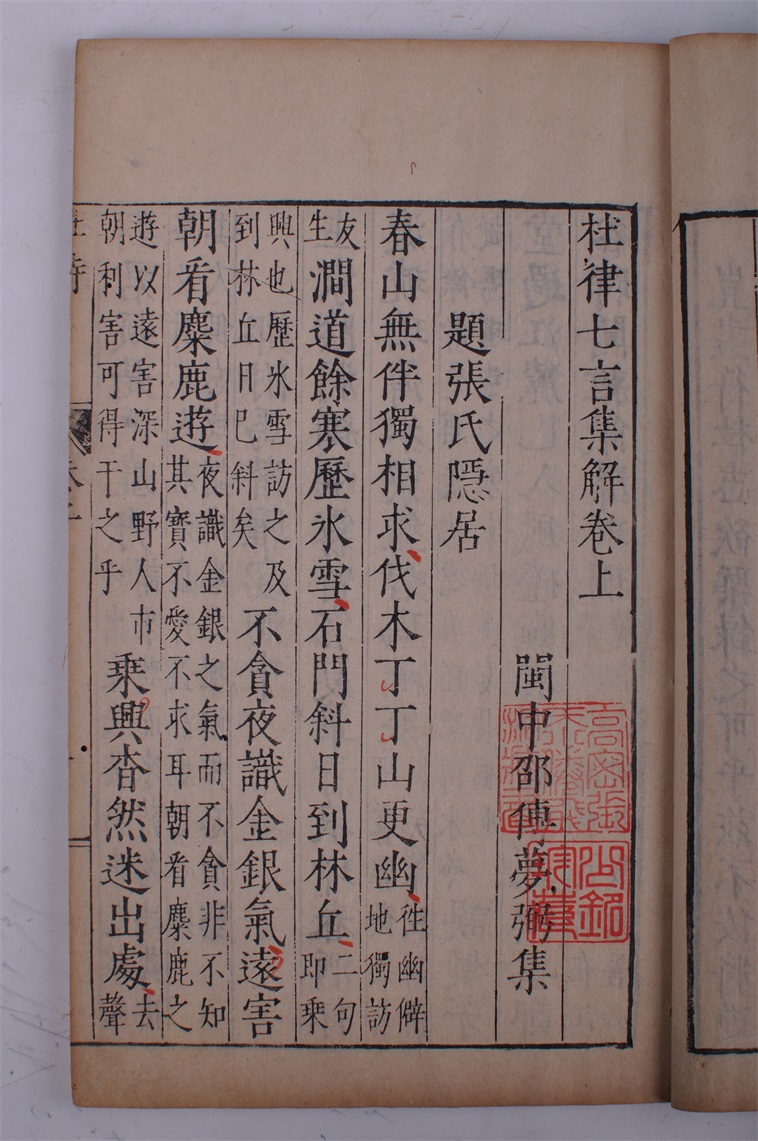 杜律七言集解卷上
閩中邵傅夢弼集
題張氏隱居
春山無伴獨相求伐木丁丁山更幽徃幽僻地獨訪
友生澗道餘寒歷氷雪石門斜日到林丘二句即乘
興也歷氷雪訪之及到林丘日已斜矣不貪夜識金銀氣遠害
朝看麋鹿遊夜識金銀之氣而不貪非不知其寶不愛不求耳朝看麋鹿之
遊以遠害深山野人市朝利害可得干之乎乘興杳然迷出處去聲